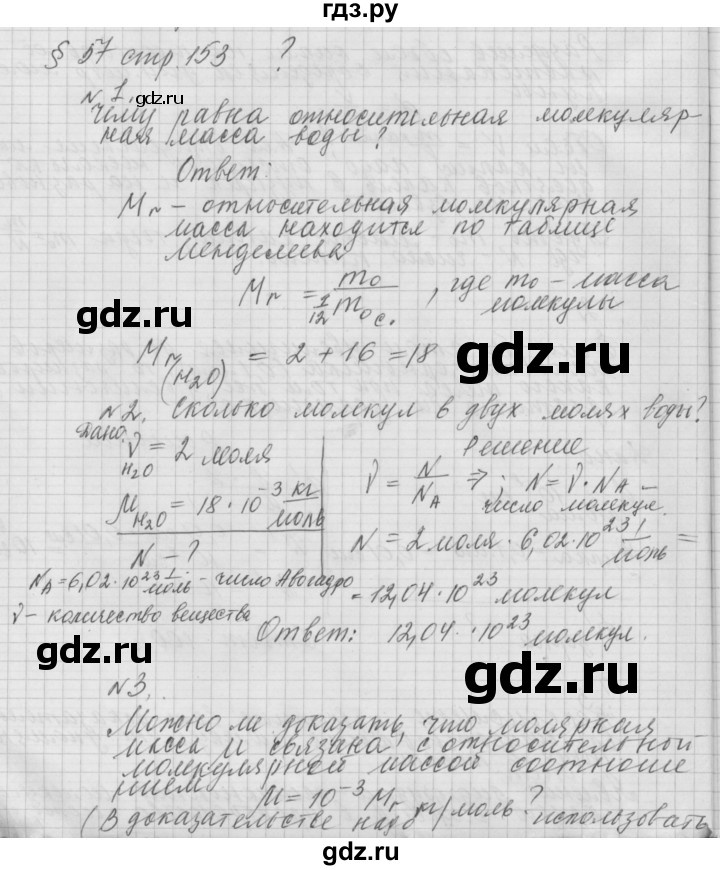 гдз.ру
§ 57 стр 153 ?
gdz.ru
№ 1.
Чему равна относительная молекуляр-
ная масса воды?
Ответ:
gdz.ru
Mr – относительная молекулярная
масса находится по таблице
Менделеева
gdz.ru
Mr = m₀ / (1/12 m₀c.) , где m₀ – масса
молекулы
Mr (H₂O) = 2 + 16 = 18
gdz.ru
№2. Сколько молекул в двух молях воды?
Дано:
ν H₂O = 2 моля
μ H₂O = 18 · 10⁻³ кг/моль
N – ?
Решение
ν = N/N_A ⇒ ; N = ν · N_A –
число молекул.
N = 2 моля · 6,02 · 10²³ 1/моль =
gdz.ru
N_A = 6,02 · 10²³ 1/моль – число Авогадро
= 12,04 · 10²³ молекул
ν – количество вещества
Ответ: 12,04 · 10²³ молекул.
gdz.ru
gdz.ru
№3.
Можно ли доказать, что молярная
масса μ связана с относительной
молекулярной массой соотноше
нием
μ = 10⁻³ Mr кг/моль?
(В доказательстве надо использовать
gdz.ru
gdz.ru